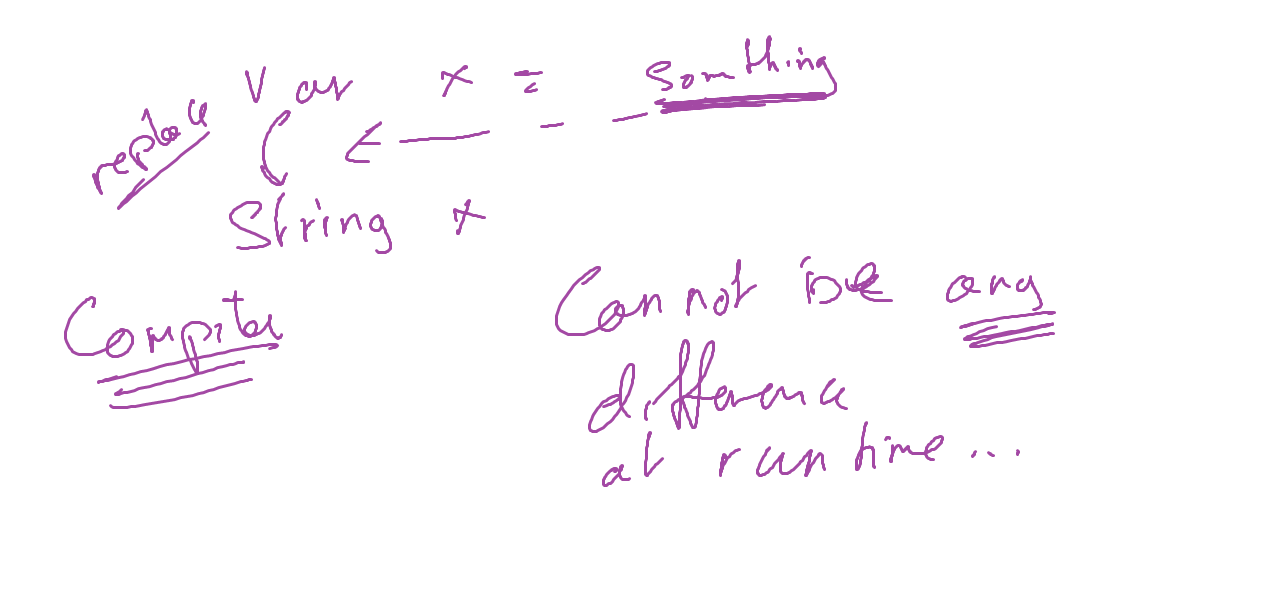 Var x = somthing
replace
String x
Compiler
Cannot be any
difference
at runtime...